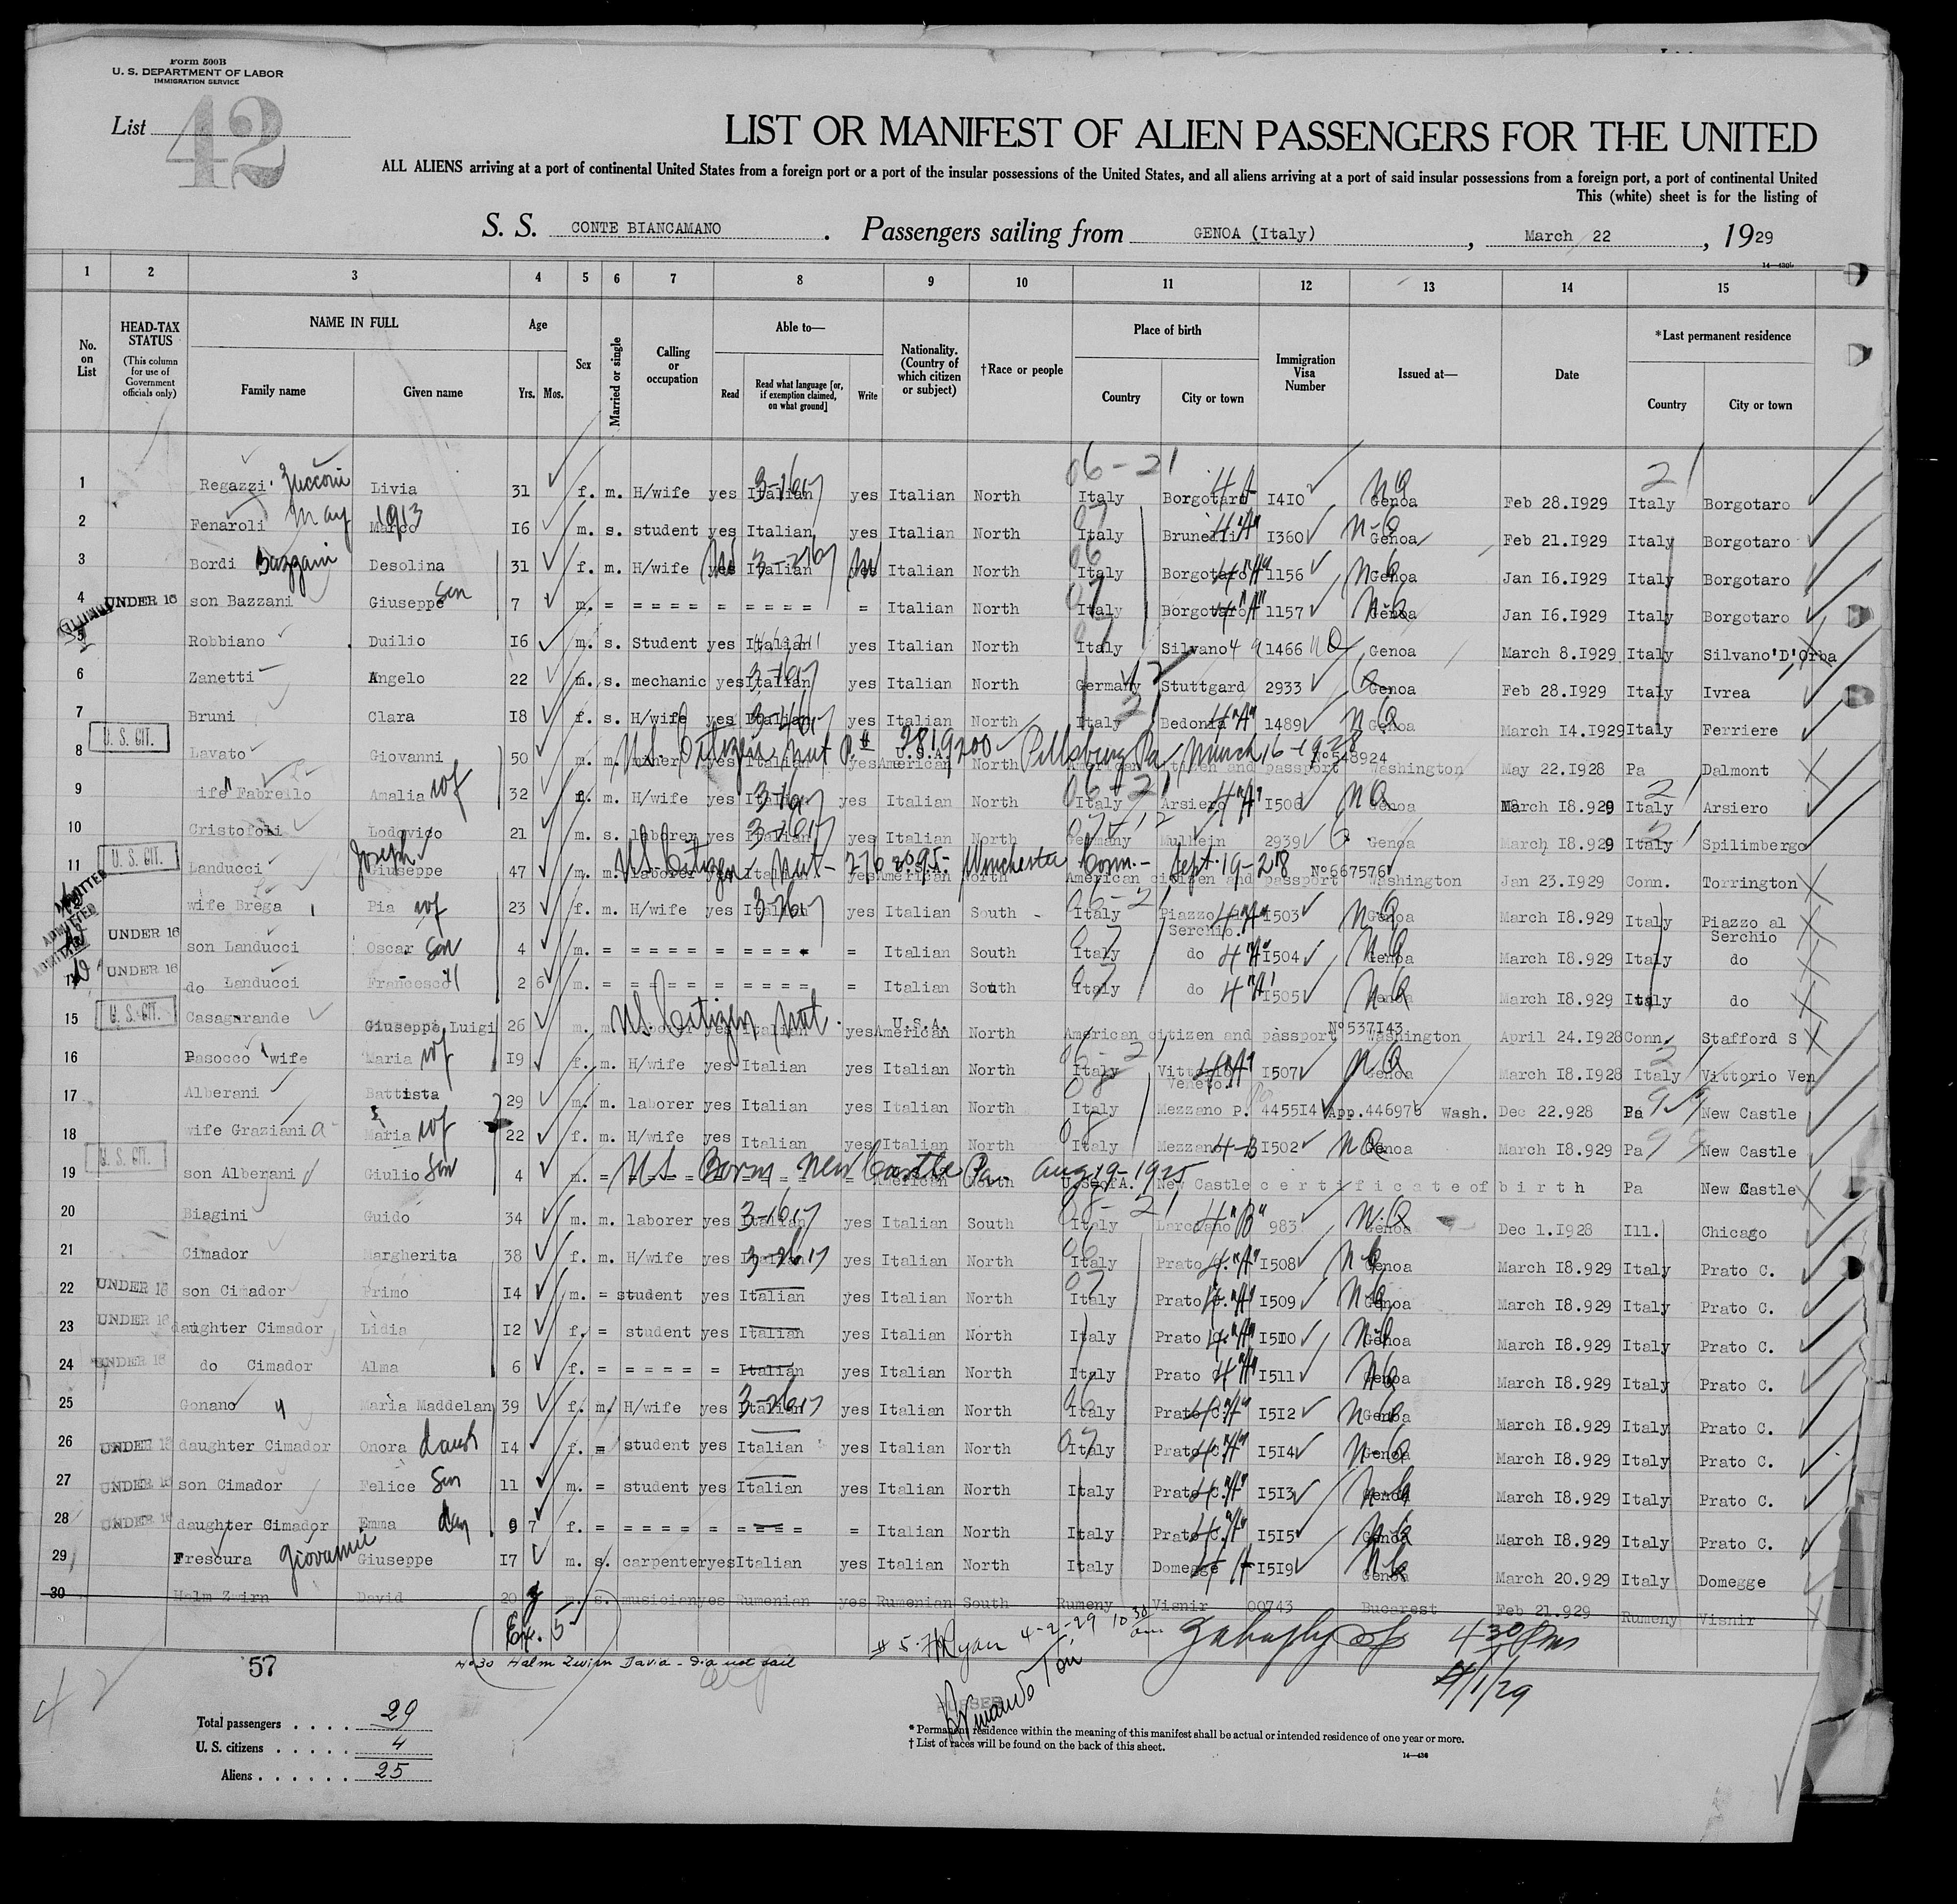 Form 500B
U. S. DEPARTMENT OF LABOR
IMMIGRATION SERVICE
List 42
LIST OR MANIFEST OF ALIEN PASSENGERS FOR THE UNITED
ALL ALIENS arriving at a port of continental United States from a foreign port or a port of the insular possessions of the United States, and all aliens arriving at a port of said insular possessions from a foreign port, a port of continental United
This (white) sheet is for the listing of
S. S. CONTE BIANCAMANO. Passengers sailing from GENOA (Italy), March 22, 1929
14—430b
1 2 3 4 5 6 7 8 9 10 11 12 13 14 15
No. on List
HEAD-TAX STATUS (This column for use of Government officials only)
NAME IN FULL Family name Given name
Age Yrs. Mos.
Sex
Married or single
Calling or occupation
Able to— Read Read what language [or, if exemption claimed, on what ground] Write
Nationality. (Country of which citizen or subject)
†Race or people
Place of birth Country City or town
Immigration Visa Number
Issued at—
Date
*Last permanent residence Country City or town
1 Regazzi Zucconi Livia 31 f. m. H/wife yes Italian yes Italian North Italy Borgotaro I4I0 Genoa Feb 28.I929 Italy Borgotaro
2 Fenaroli May 1913 Marco I6 m. s. student yes Italian yes Italian North Italy Brunelli I360 Genoa Feb 21.I929 Italy Borgotaro
3 Bordi Bazzani Desolina 31 f. m. H/wife yes Italian yes Italian North Italy Borgotaro 1156 Genoa Jan I6.I929 Italy Borgotaro
4 UNDER 16 son Bazzani Giuseppe Son 7 m. = = = = = = = = = = = Italian North Italy Borgotaro 1157 Genoa Jan I6.I929 Italy Borgotaro
5 Robbiano Duilio I6 m. s. Student yes Italian yes Italian North Italy Silvano 1466 Genoa March 8.I929 Italy Silvano'D'Orba
6 Zanetti Angelo 22 m. s. mechanic yes Italian yes Italian North Germany Stuttgard 2933 Genoa Feb 28.I929 Italy Ivrea
7 Bruni Clara I8 f. s. H/wife yes Italian yes Italian North Italy Bedonia 1489 Genoa March I4.I929 Italy Ferriere
8 U. S. CIT. Lavato Giovanni 50 m. m. miner yes Italian yes American U.S.A. North American citizen and passport Nº548924 Washington May 22.I928 Pa Dalmont
US Citizen Nat P. # 2819200 Pittsburg Pa March 16-1928
9 wife Fabrello Amalia wf 32 f. m. H/wife yes Italian yes Italian North Italy Arsiero I506 Genoa March I8.929 Italy Arsiero
10 Cristofoli Lodovico 21 m. s. laborer yes Italian yes Italian North Germany Mulhein 2939 Genoa March I8.929 Italy Spilimbergo
11 U. S. CIT. Landucci Joseph Giuseppe 47 m. m. laborer yes Italian yes American U.S.A. North American citizen and passport Nº667576 Washington Jan 23.I929 Conn. Torrington
US Citizen Nat- Winchester Conn.- Sept. 19-28
ADMITTED wife Brega Pia wf 23 f. m. H/wife yes Italian yes Italian South Italy Piazzo al Serchio. I503 Genoa March I8.929 Italy Piazzo al Serchio
ADMITTED UNDER 16 son Landucci Oscar Son 4 m. = = = = = = = = = = = Italian South Italy do I504 Genoa March I8.929 Italy do
ADMITTED UNDER 16 do Landucci Francesco 2 6 m. = = = = = = = = = = = Italian South Italy do I505 Genoa March I8.929 Italy do
15 U. S. CIT. Casagrande Giuseppe Luigi 26 m. m. laborer yes Italian yes American U.S.A. North American citizen and passport Nº537I43 Washington April 24.I928 Conn. Stafford S
US Citizen Nat.
16 Pasocco wife Maria wf I9 f. m. H/wife yes Italian yes Italian North Italy Vittorio Veneto. I507 Genoa March I8.I928 Italy Vittorio Ven
17 Alberani Battista 29 m. m. laborer yes Italian yes Italian North Italy Mezzano P. 4455I4 App.446976 Wash. Dec 22.928 Pa New Castle
18 wife Graziani Maria wf 22 f. m. H/wife yes Italian yes Italian North Italy Mezzano I502 Genoa March I8.929 Pa New Castle
19 U. S. CIT. son Alberani Giulio Son 4 m. = American North U.S.of A. New Castle certificate of birth Pa New Castle
US Born New Castle Pa. Aug 19-1925
20 Biagini Guido 34 m. m. laborer yes Italian yes Italian South Italy Larciano 983 Genoa Dec 1.I928 Ill. Chicago
21 Cimador Margherita 38 f. m. H/wife yes Italian yes Italian North Italy Prato C. I508 Genoa March I8.929 Italy Prato C.
22 UNDER 16 son Cimador Primo I4 m. = student yes Italian yes Italian North Italy Prato C. I509 Genoa March I8.929 Italy Prato C.
23 UNDER 16 daughter Cimador Lidia I2 f. = student yes Italian yes Italian North Italy Prato C. I5I0 Genoa March I8.929 Italy Prato C.
24 UNDER 16 do Cimador Alma 6 f. = = = = = = Italian yes Italian North Italy Prato I5II Genoa March I8.929 Italy Prato C.
25 Gonano Maria Maddelan 39 f. m. H/wife yes Italian yes Italian North Italy Prato C. I5I2 Genoa March I8.929 Italy Prato C.
26 UNDER 16 daughter Cimador Onora daug I4 f. = student yes Italian yes Italian North Italy Prato C. I5I4 Genoa March I8.929 Italy Prato C.
27 UNDER 16 son Cimador Felice Son 11 m. = student yes Italian yes Italian North Italy Prato C. I5I3 Genoa March I8.929 Italy Prato C.
28 UNDER 16 daughter Cimador Emma 9 7 f. = = = = = = = = = = = Italian North Italy Prato C. I5I5 Genoa March I8.929 Italy Prato C.
29 Frescura Giovanni Giuseppe I7 m. s. carpenter yes Italian yes Italian North Italy Domegge I5I9 Genoa March 20.929 Italy Domegge
30 Halm Zwirn David 20 m. s. musician yes Rumenian yes Rumenian South Rumeny Visnir 00743 Bucarest Feb 21.929 Rumeny Visnir
Ex. 5
# 5. Ryan 4-2-29 10 30 am
4 30 Pm
4/1/29
57
Nº30 Halm Zwirn David - did not sail
PURSER
Total passengers . . . . 29
U. S. citizens . . . . . 4
Aliens . . . . . . 25
* Permanent residence within the meaning of this manifest shall be actual or intended residence of one year or more.
† List of races will be found on the back of this sheet.
14—430